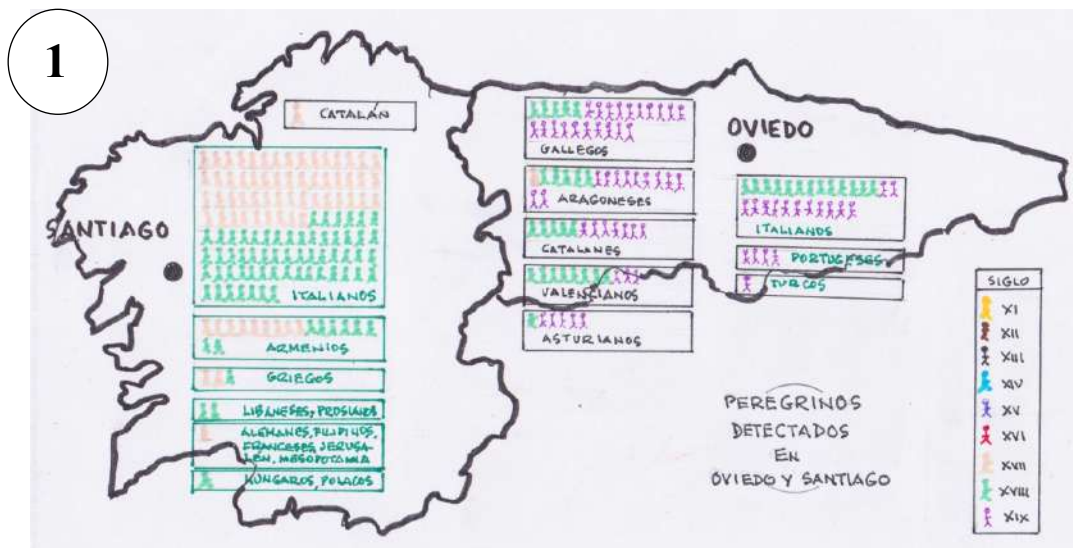 1
CATALÁN
SANTIAGO
ITALIANOS
ARMENIOS
GRIEGOS
LIBANESES, PRUSIANOS
ALEMANES, FILIPINOS,
FRANCESES, JERUSA-
LÉN, MESOPOTAMIA
HÚNGAROS, POLACOS
GALLEGOS
ARAGONESES
CATALANES
VALENCIANOS
ASTURIANOS
OVIEDO
ITALIANOS
PORTUGESES
TURCOS
PEREGRINOS
DETECTADOS
EN
OVIEDO Y SANTIAGO
SIGLO
XI
XII
XIII
XIV
XV
XVI
XVII
XVIII
XIX